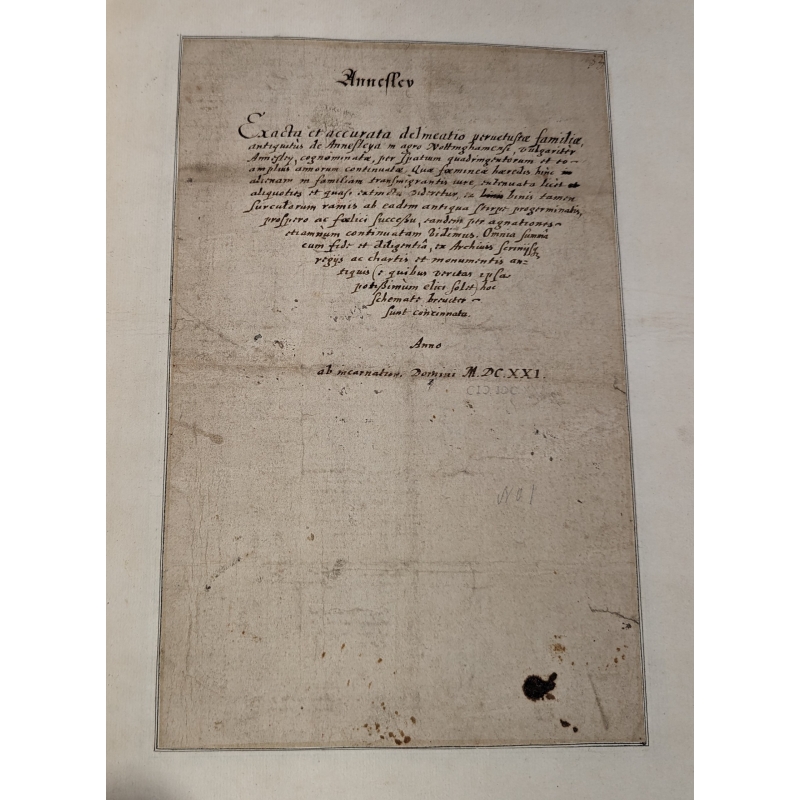 Annesley
Exacta et accurata delineatio peruetustæ familiæ,
antiquitùs de Annesleya in agro Nottinghamensi, vulgariter
Annesley, cognominatæ, per spatium quadringentorum et eo
amplius annorum continuatæ. Quæ fœmineæ hæredis hinc in
alienam in familiam transmigrantis iure, extenuata licet et
aliquoties et quasi extincta videretur, ex binis tamen
surculorum ramis ab eadem antiqua stirpe progerminatis,
prospero ac fœlici successu, eandem per agnationes
etiamnum continuatam vidimus. Omnia summa
cum fide et diligentiâ, ex Archivis scrinijsq
regijs ac chartis et monumentis an-
tiquis (e quibus veritas ipsa
potißimùm elici solet) hoc
schemate breuiter
sunt concinnata.
Anno
ab incarnatione Domini M.DC.XXI.
No 1